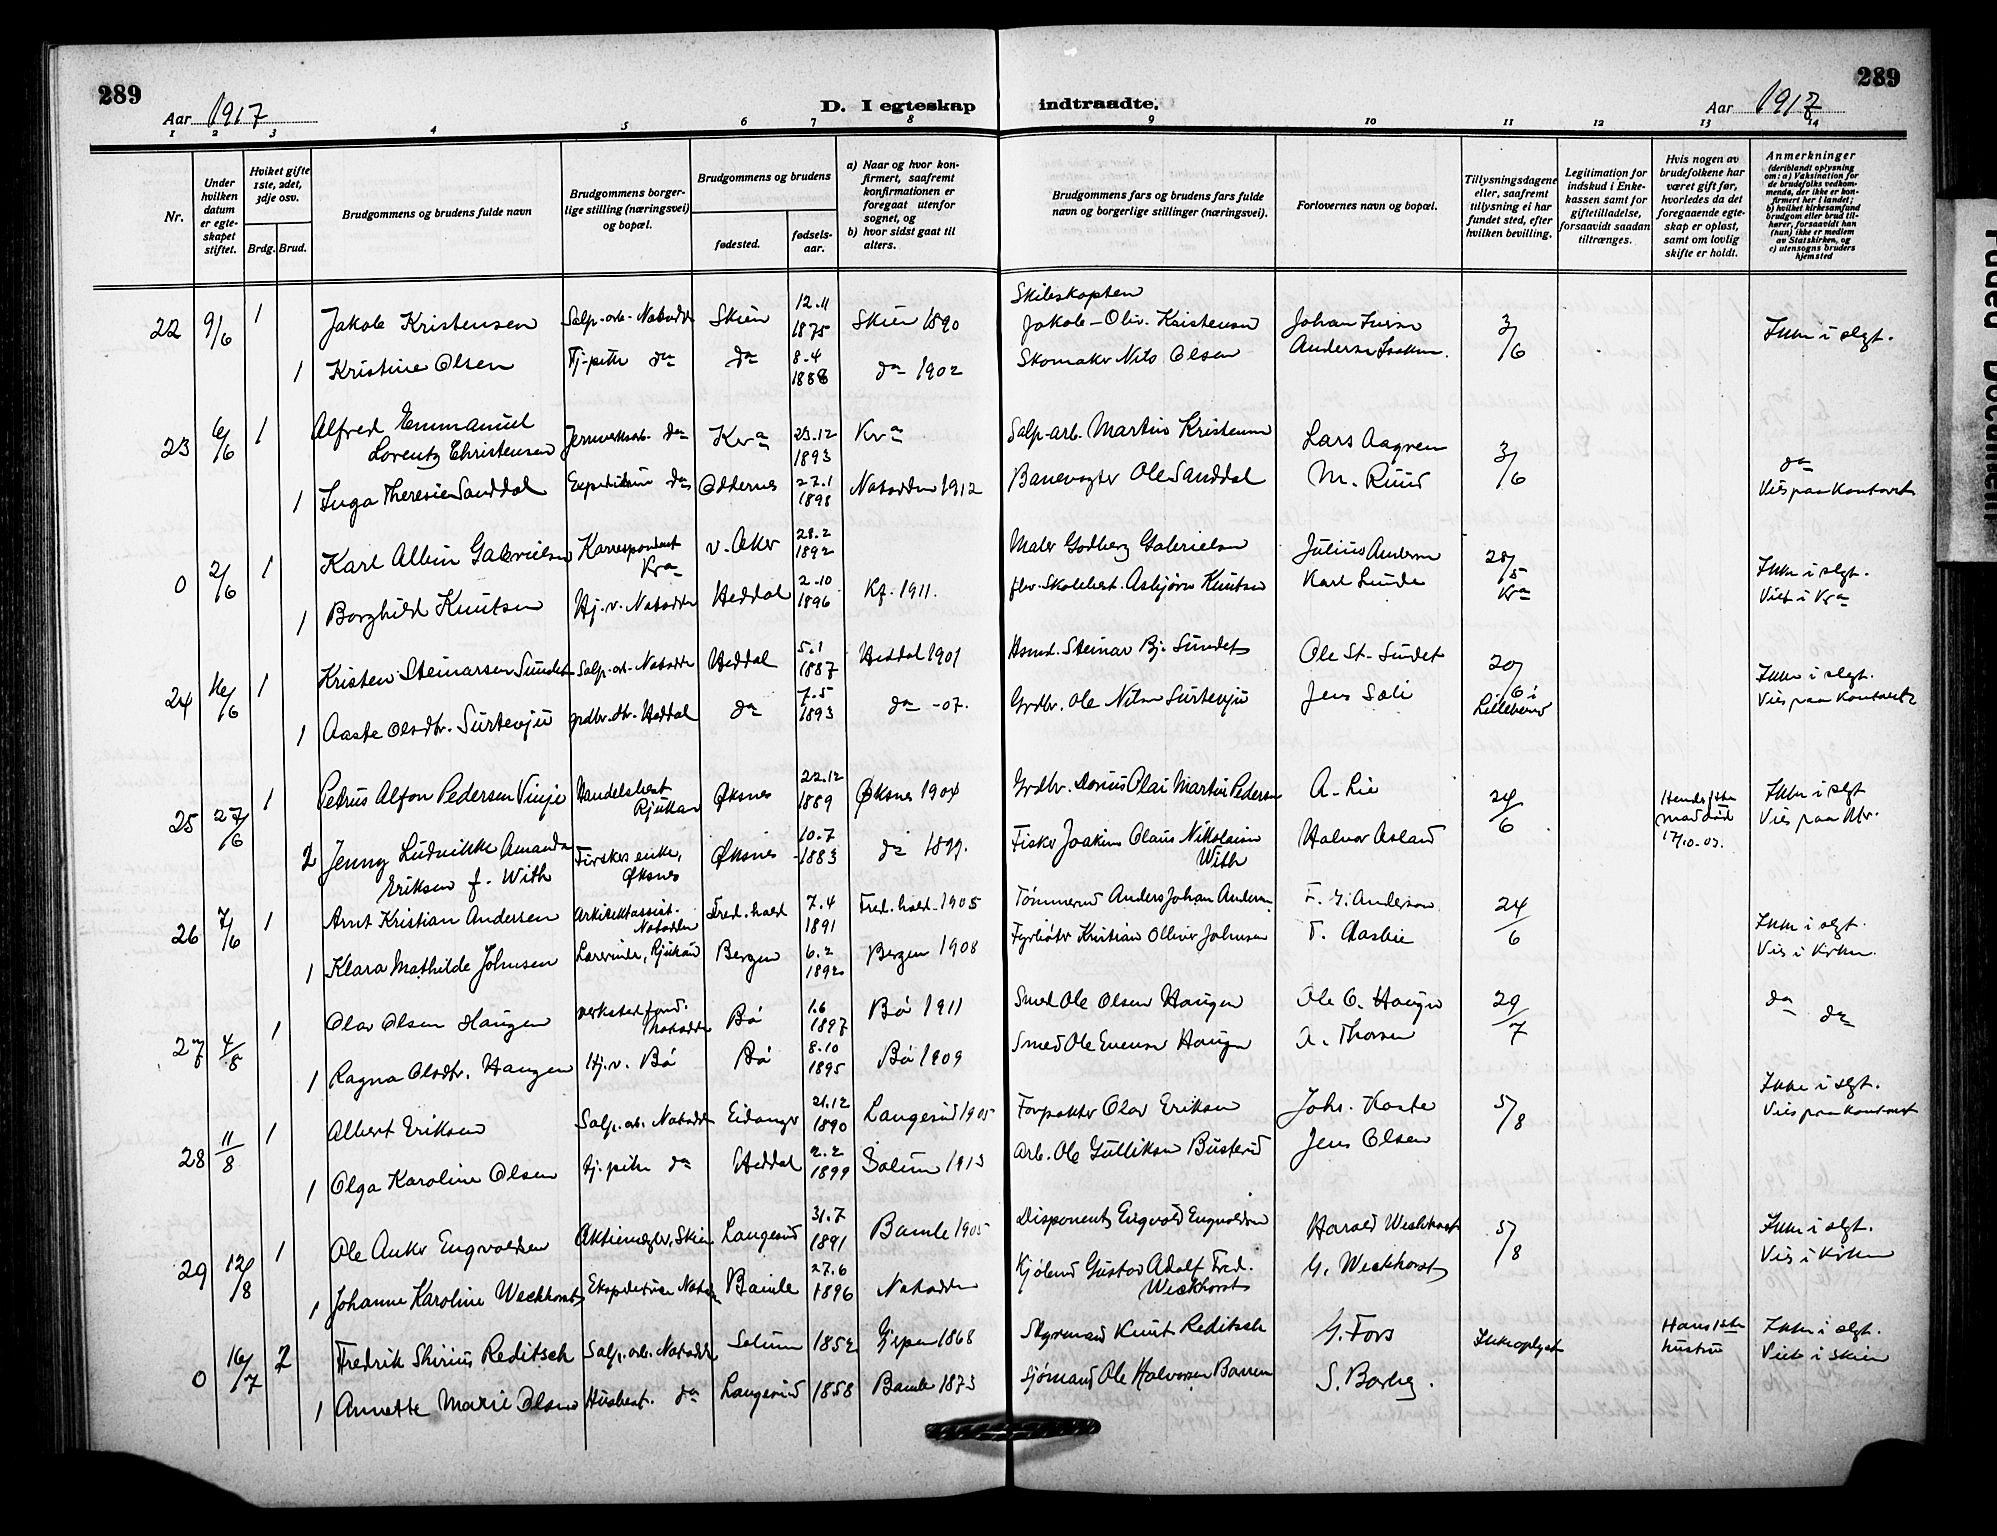 289
Aar 1917
D. I egteskap
indtraadte.
Aar 1917
289
1 2 3 4 5 6 7 8 9 10 11 12 13 14
Nr.
Under hvilken datum er egteskapet stiftet.
Hviket gifte 1ste, 2det, 3dje osv.
Brdg. Brud.
Brudgommens og brudens fulde navn
Brudgommens borgerlige stilling (næringsvei) og bopæl.
Brudgommens og brudens
fødested.
fødselsaar.
a) Naar og hvor konfirmert, saafremt konfirmationen er foregaat utenfor sognet, og
b) hvor sidst gaat til alters.
Brudgommens fars og brudens fars fulde navn og borgerlige stillinger (næringsvei).
Forlovernes navn og bopæl.
Tillysningsdagene eller, saafremt tillysning ei har fundet sted, efter hvilken bevilling.
Legitimation for indskud i Enkekassen samt for giftetilladelse, forsaavidt saadan tiltrænges.
Hvis nogen av brudefolkene har været gift før, hvorledes da det foregaaende egteskap er opløst, samt om lovlig skifte er holdt.
Anmerkninger (deriblandt oplysning om: a) Vaksination for de brudefolks vedkommende, der ikke er konfirmert her i landet; b) hvilket kirkesamfund brudgom eller brud tilhører, forsaavidt han (hun) ikke er medlem av Statskirken, og c) utensogns bruders hjemsted
22 9/6 1 Jakob Kristensen Salp.arb. Notodden Skien 12.11 1875 Skien 1890 Jakob Oliv. Kristensen Johan 3/6 Ikke i slgt.
1 Kristine Olsen Tj.pike da da 8.4 1888 da 1902 Skomaker Nils Olsen Anders
23 6/6 1 Alfred Emmanuel Lorentz Christensen Jernverksarb. da Kr.a 23.12 1893 Kr.a Salp.arb. Martin Kristensen Lars Aagren 3/6 da
1 Inga Theresie Sanddal da Oddernes 27.1 1898 Notodden 1912 Banevogter Ole Sanddal M. Ruud Vies paa Kontoret
0 2/6 1 Karl Albin Gabrielsen Korrespondent Kr.a v. Aker 28.2 1892 Maler Godberg Gabrielsen Julius Andersen 28/5 Kr.a Ikke i slgt.
1 Borghild Knutsen Hj.v. Notodden Heddal 2.10 1896 Kf. 1911. Asbjørn Knutsen Karl Lunde Viet i Kr.a
24 16/6 1 Kristen Steinarsen Sundet Salp.arb. Notodden Heddal 5.1 1887 Heddal 1901 Husmd. Steinar Bj. Sundet Ole St. Sundet 20/6 i Ikke i slgt.
1 Aaste Olsdtr. Surtevju grdbr.dtr. Heddal da 7.5 1893 da -07. Grdbr. Ole Nilsen Surtevju Jens Sæli Vies paa Kontoret
25 27/6 1 Petrus Alfon Pedersen Vinje Handelsbest. Rjukan Øksnes 22.12 1889 Øksnes 1904 Grdbr. Dorius Olai Martin Pedersen A. Lie 24/6 Ikke i slgt
2 Jenny Ludvikke Amanda Eriksen f. With Fiskers enke, Øksnes Øksnes 10.7 1883 da 1899. Fisker Joakim Olaus Nikolaisen With Halvor Asland 17/10-07.
26 7/6 1 Arnt Kristian Andersen Arkitektassist. Notodden Fred.hald 7.4 1891 Fred.hald 1905 Tømmermd Anders Johan Andersen F. G. Anderson 24/6 Ikke i slgt.
1 Klara Mathilde Johnsen Lærerinde, Rjukan Bergen 6.2 1892 Bergen 1908 Fyrbøter Kristian Olliver Johnsen T. Aasbie Vies i Kirken.
27 4/8 1 Olav Olsen Haugen Notodden Bø 1.6 1897 Bø 1911 Smed Ole Olsen Haugen Ole O. Haugen 29/7 da da
1 Ragna Olsdtr. Haugen Hj.v. Bø Bø 8.10 1895 Bø 1909 Smed Ole Evensen Haugen A. Thorsen
28 11/8 1 Albert Eriksen Salp.arb. Notodden Eidanger 21.12 1890 Langesund 1905 Forpakter Olav Eriksen Johs. Kaste 5/8 Ikke i slgt.
1 Olga Karoline Olsen Tj.pike da Heddal 2.2 1899 Solum 1913 Arb. Ole Gulliksen Busterud Jens Olsen Vies paa Kontoret
29 12/8 1 Ole Anker Engvoldsen Aktiemegler, Skien Langesund 31.7 1891 Bamle 1905 Disponent Engvold Engvoldsen Harald Weckhorst 5/8 Ikke i slgt.
1 Johanne Karoline Weckhorst Ekspeditrice Notodden Bamle 27.6 1896 Notodden Kjøbmd Gustav Adolf Fred. Weckhorst G. Weckhorst Vies i Kirken
0 16/7 2 Fredrik Reditsch Salp.arb. Notodden Solum 1852 Gjerpen 1868 Styrmand Knut Reditsch G. Fors Ikke oplyst Hans 1ste hustru Ikke i slgt.
1 Annette Marie Olsen Husbest. da Langesund 1858 Bamle 1873 Sjømand Ole Halvorsen S. Borberg. Viet i Skien